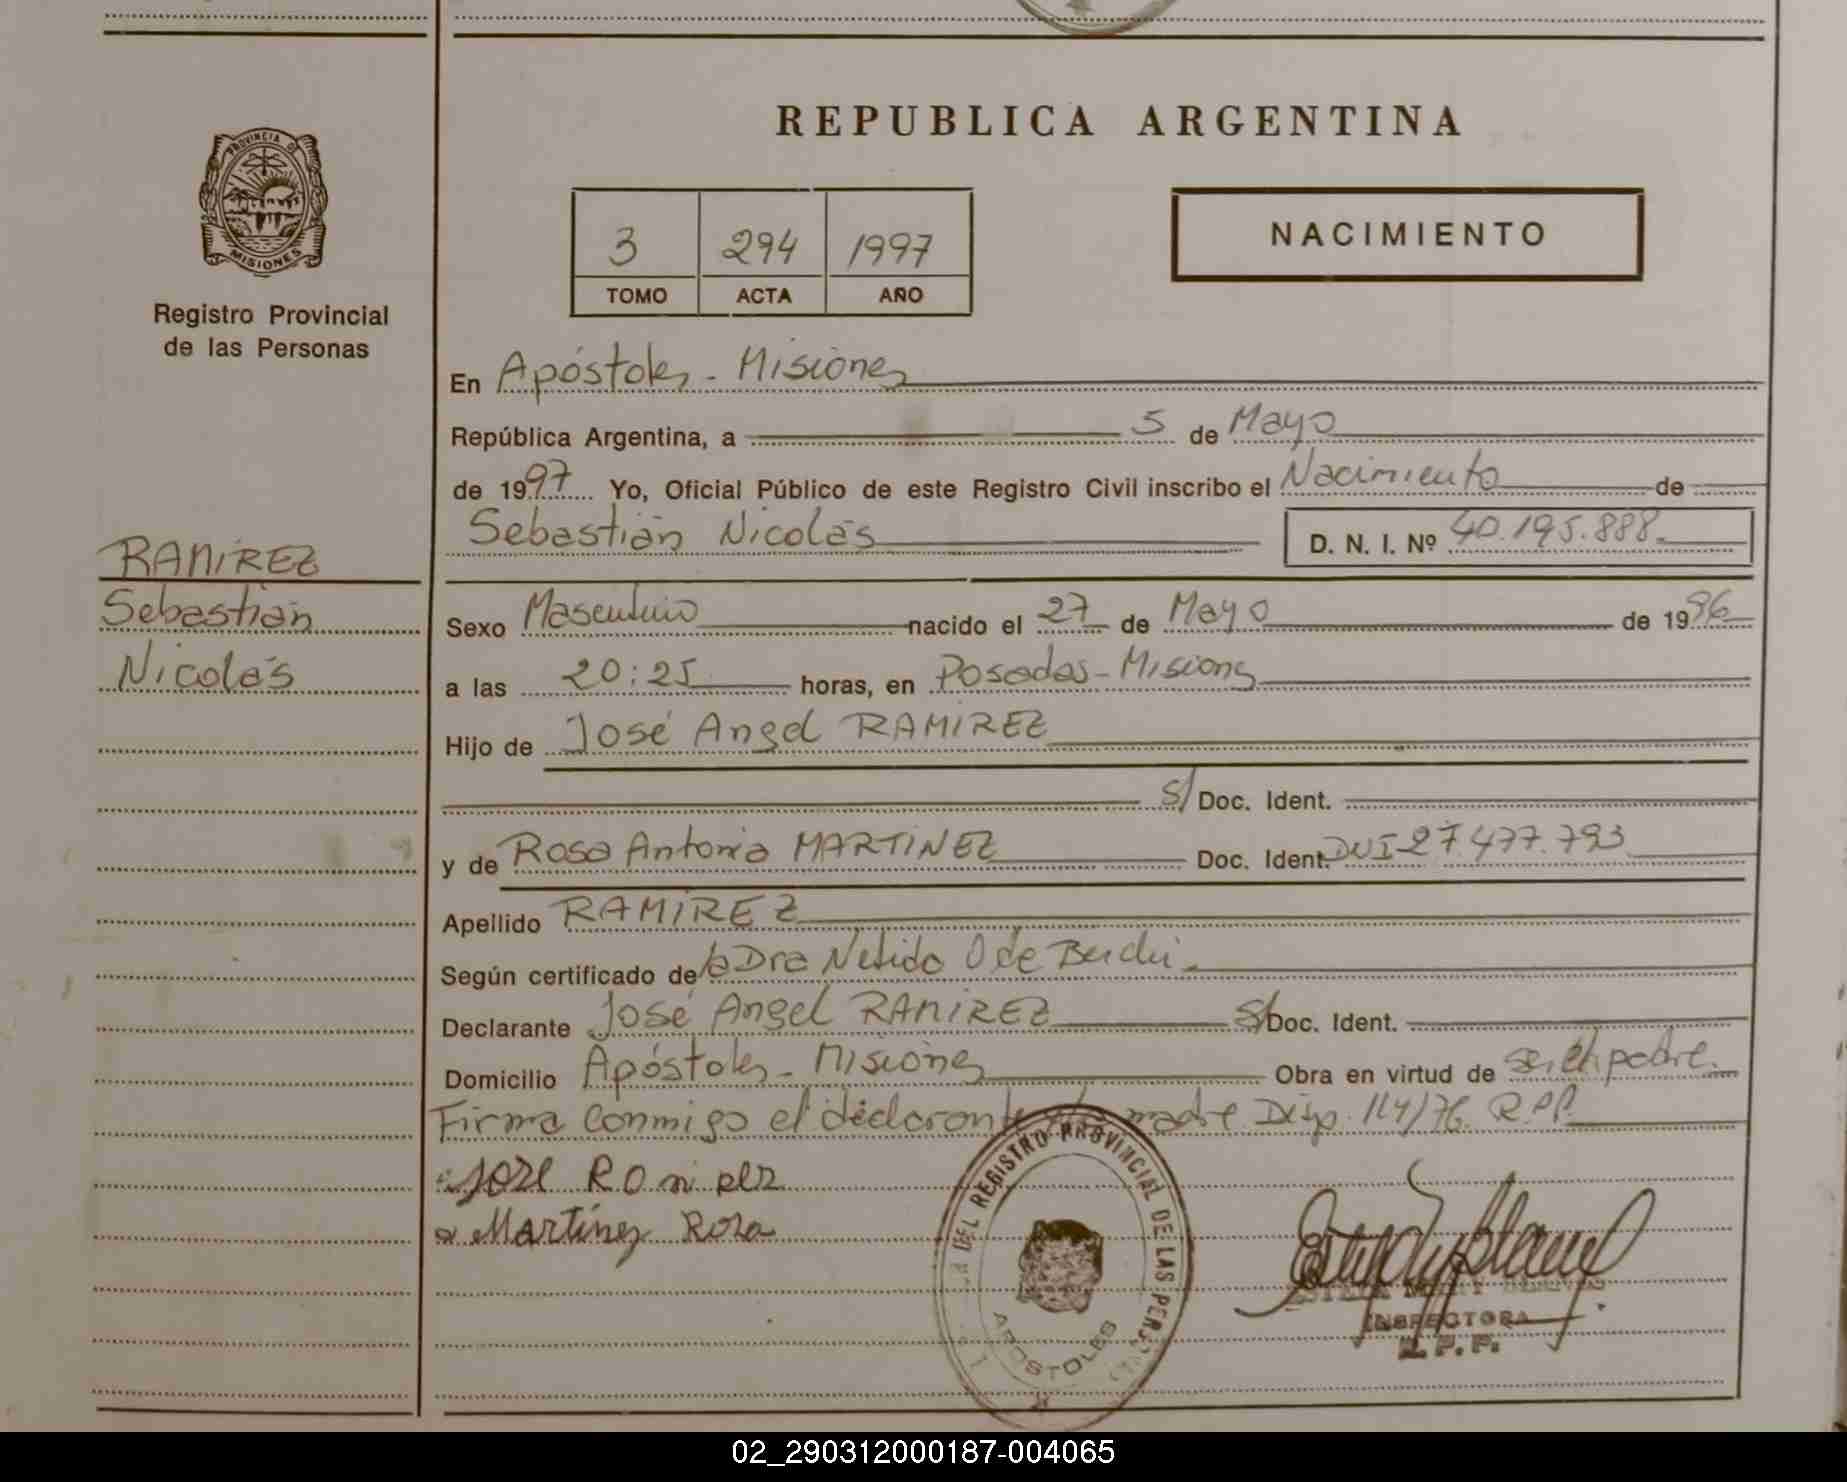 REPUBLICA ARGENTINA
PROVINCIA DE
MISIONES
Registro Provincial
de las Personas
3 294 1997
TOMO ACTA AÑO
NACIMIENTO
En Apóstoles - Misiones
República Argentina, a 5 de Mayo
de 1997 Yo, Oficial Público de este Registro Civil inscribo el Nacimiento de
Sebastián Nicolás D. N. I. Nº 40.195.888
RAMIREZ
Sebastián
Nicolás
Sexo Masculino nacido el 27 de Mayo de 1996
a las 20:25 horas, en Posadas - Misiones
Hijo de José Angel RAMIREZ
S/ Doc. Ident.
y de Rosa Antonia MARTINEZ Doc. Ident. DNI 27.477.793
Apellido RAMIREZ
Según certificado de la Dra
Declarante José Angel RAMIREZ S/ Doc. Ident.
Domicilio Apóstoles - Misiones Obra en virtud de ser el padre.
Firma conmigo el declarante madre Disp. 114/76 R.P.P.
Jose Ramirez
Martínez Rosa
DEL REGISTRO PROVINCIAL DE LAS PERSONAS
APOSTOLES
INSPECTORA
R. P. P.
02_290312000187-004065